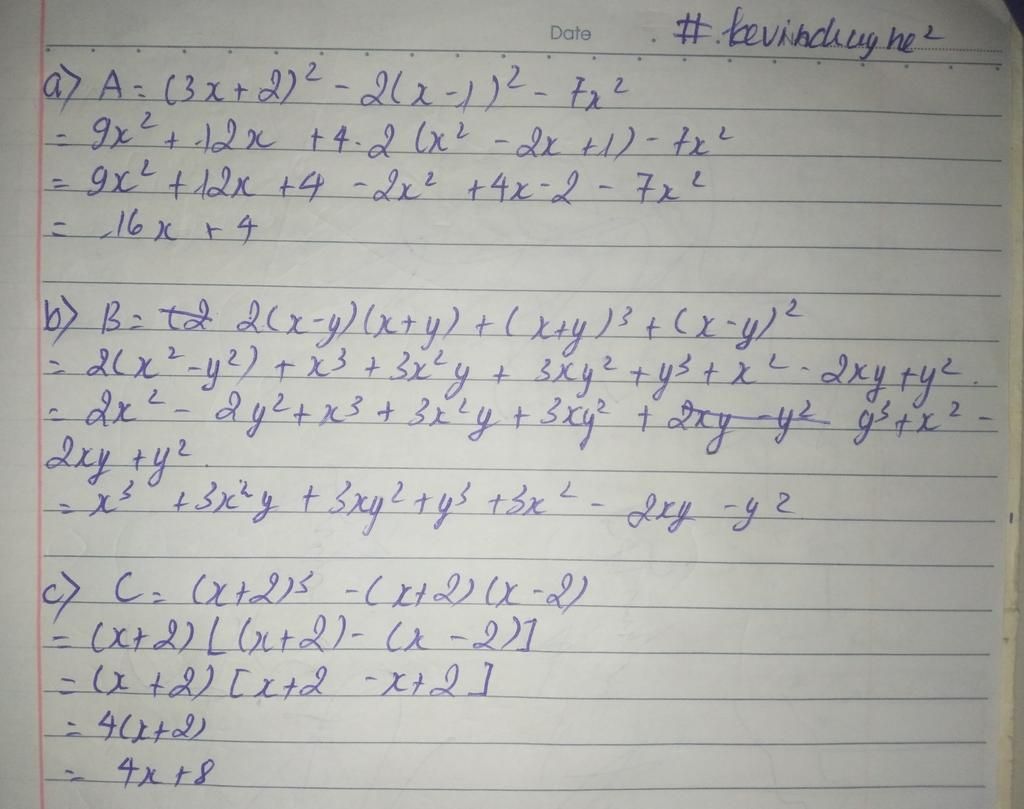 Date
#.kevinduyne²
a) A = (3x+2)² - 2(x-1)² - 7x²
= 9x² + 12x + 4 - 2 (x² - 2x + 1) - 7x²
= 9x² + 12x + 4 - 2x² + 4x - 2 - 7x²
= 16x + 4
b) B = +2 2(x-y)(x+y) + (x+y)³ + (x-y)²
= 2(x² - y²) + x³ + 3x²y + 3xy² + y³ + x² - 2xy + y².
= 2x² - 2y² + x³ + 3x²y + 3xy² + 2xy - y² y³ + x² -
2xy + y².
= x³ + 3x²y + 3xy² + y³ + 3x² - 2xy - y²
c) C = (x+2)³ - (x+2)(x-2)
= (x+2)[(x+2) - (x-2)]
= (x+2)[x+2 - x+2]
= 4(x+2)
= 4x+8